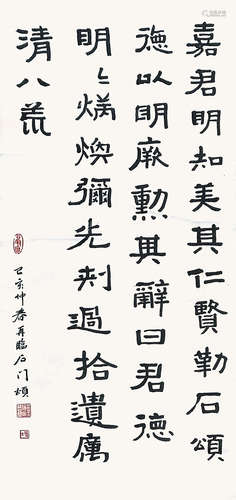 嘉君明知美其仁賢勒石頌
德以明厥勳其辭曰君德
明明煥煥彌光刺過拾遺厲
清八荒
己亥仲春再臨石门頌